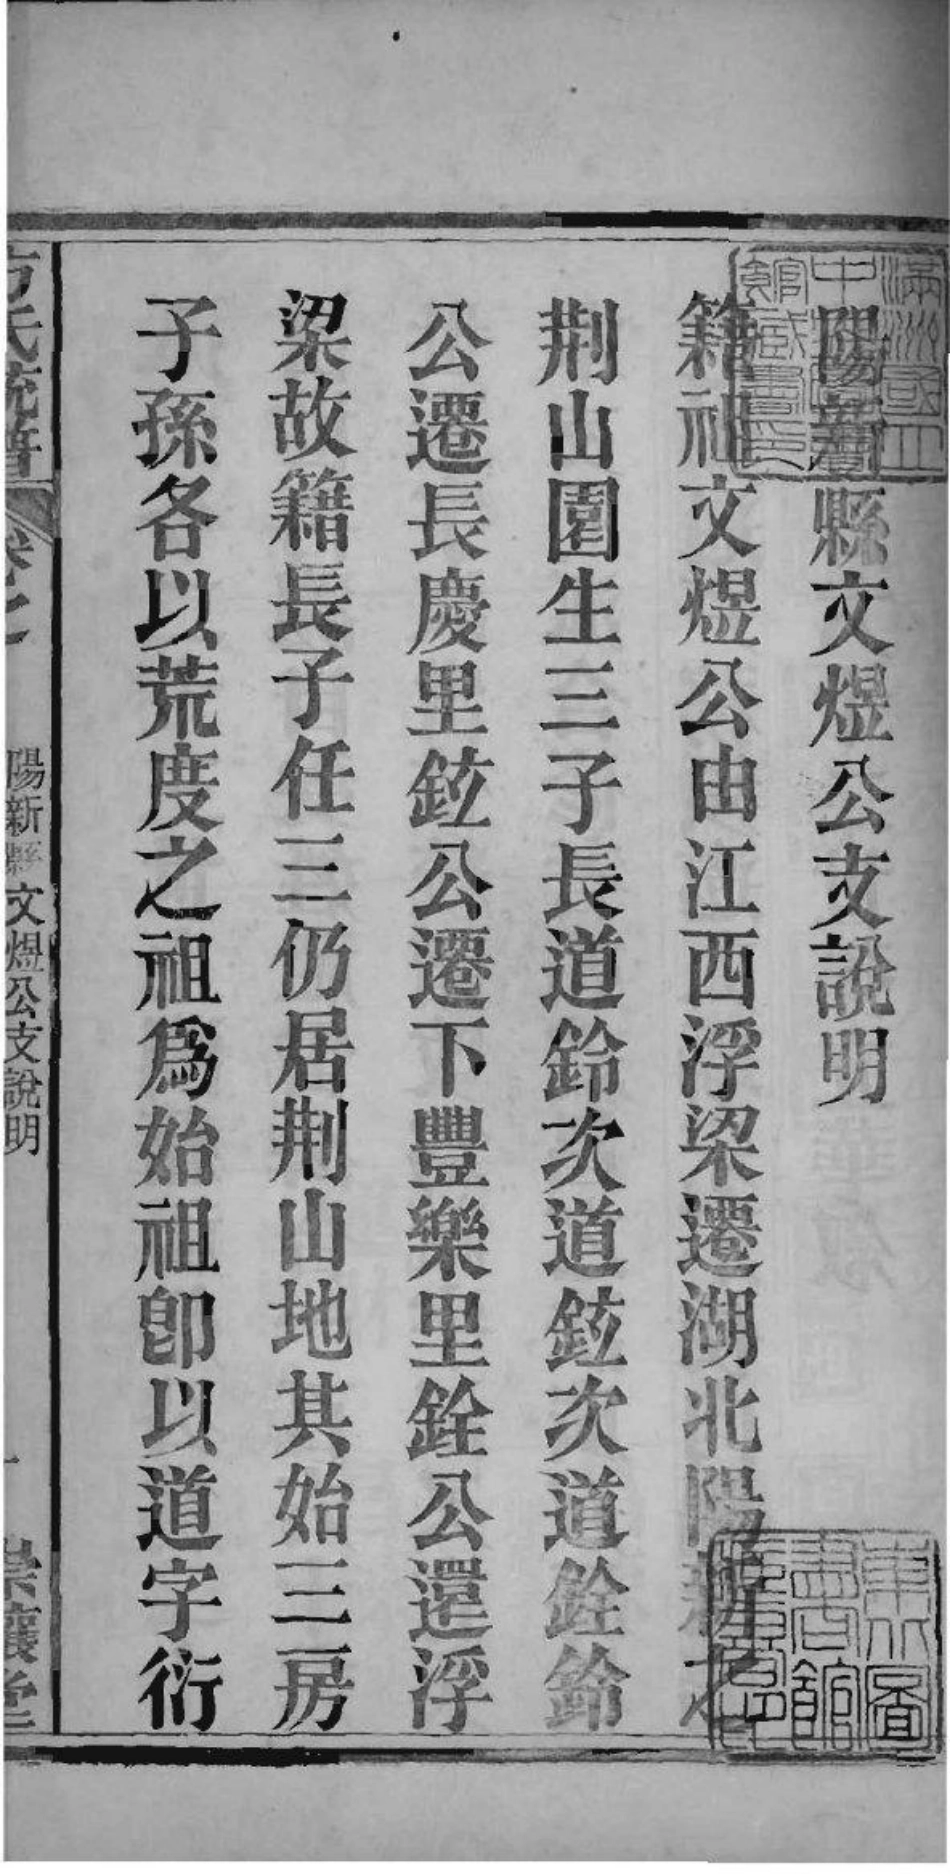 陽新縣文煜公支說明
籍祖文煜公由江西浮梁遷湖北陽新之
荆山園生三子長道鈴次道鉉次道銓鈴
公遷長慶里鉉公遷下豐樂里銓公還浮
梁故籍長子任三仍居荆山地其始三房
子孫各以荒度之祖爲始祖卽以道字衍
方氏統譜
卷之
陽新縣文煜公支說明
一
崇讓堂
滿洲國立
中央圖書
館藏書印